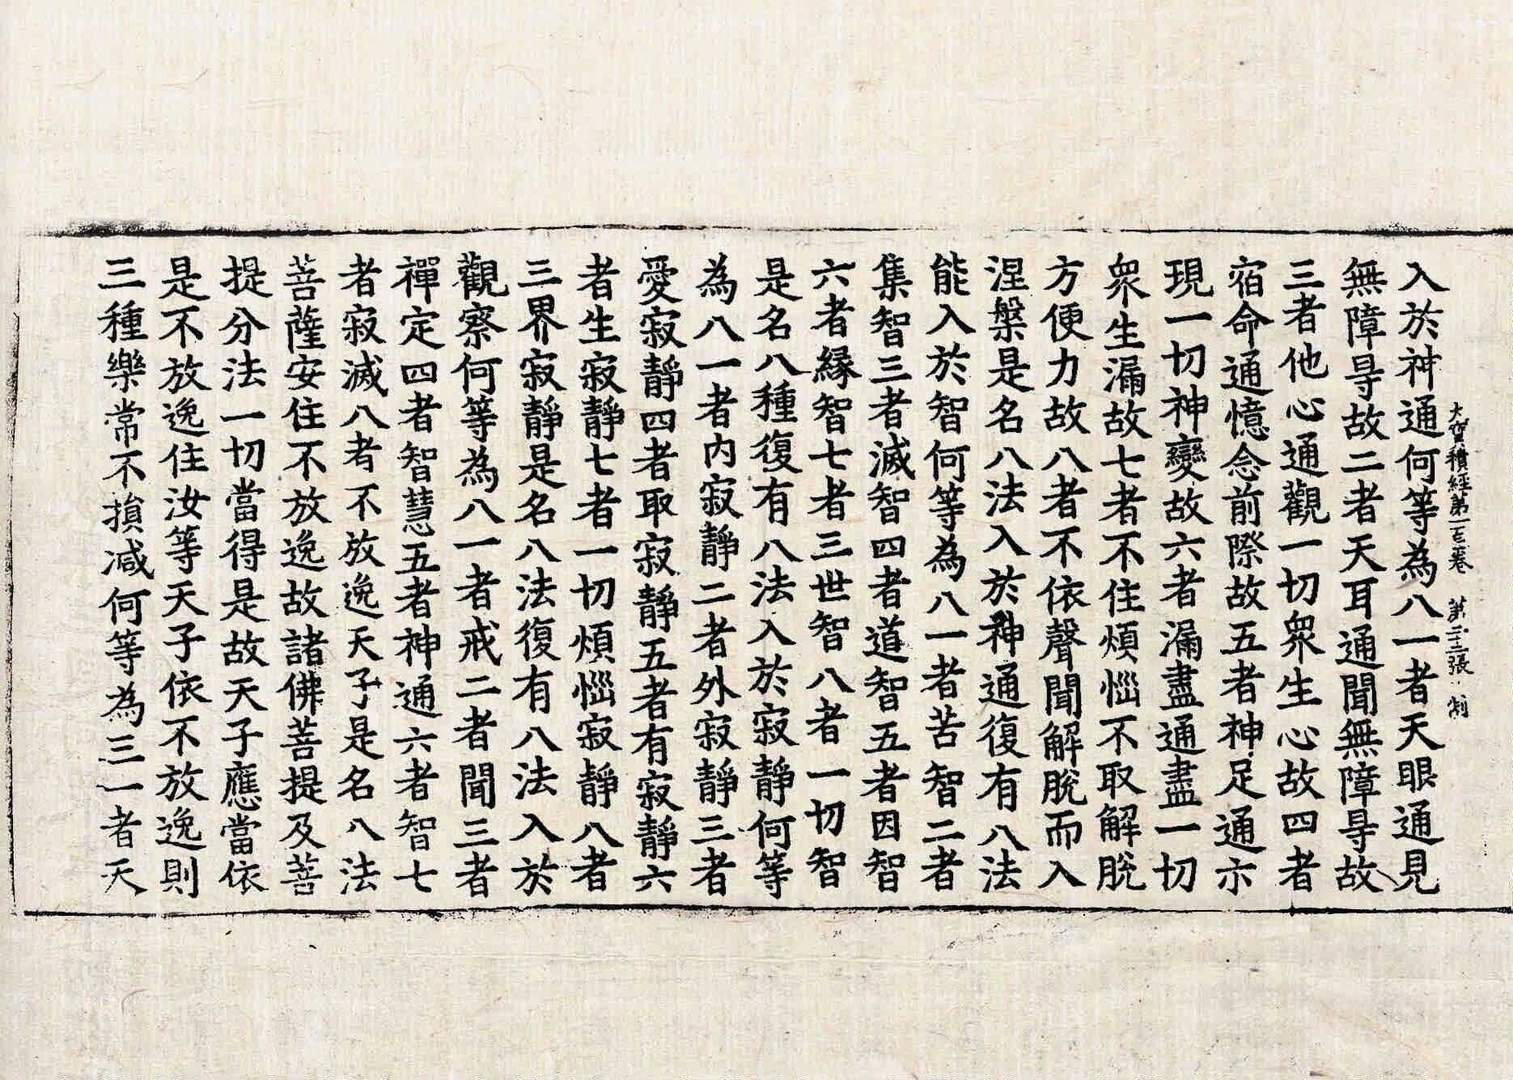 大寳積經第一百一卷　第　三張
入於神通何等為八一者天眼通見
無障㝵故二者天耳通聞無障㝵故
三者他心通觀一切眾生心故四者
宿命通憶念前際故五者神足通示
現一切神變故六者漏盡通盡一切
眾生漏故七者不住煩惱不取解脫
方便力故八者不依聲聞解脫而入
涅槃是名八法入於神通復有八法
能入於智何等為八一者苦智二者
集智三者滅智四者道智五者因智
六者緣智七者三世智八者一切智
是名八種復有八法入於寂靜何等
為八一者內寂靜二者外寂靜三者
愛寂靜四者取寂靜五者有寂靜六
者生寂靜七者一切煩惱寂靜八者
三界寂靜是名八法復有八法入於
觀察何等為八一者戒二者聞三者
禪定四者智慧五者神通六者智七
者寂滅八者不放逸天子是名八法
菩薩安住不放逸故諸佛菩提及菩
提分法一切當得是故天子應當依
是不放逸住汝等天子依不放逸則
三種樂常不損減何等為三一者天